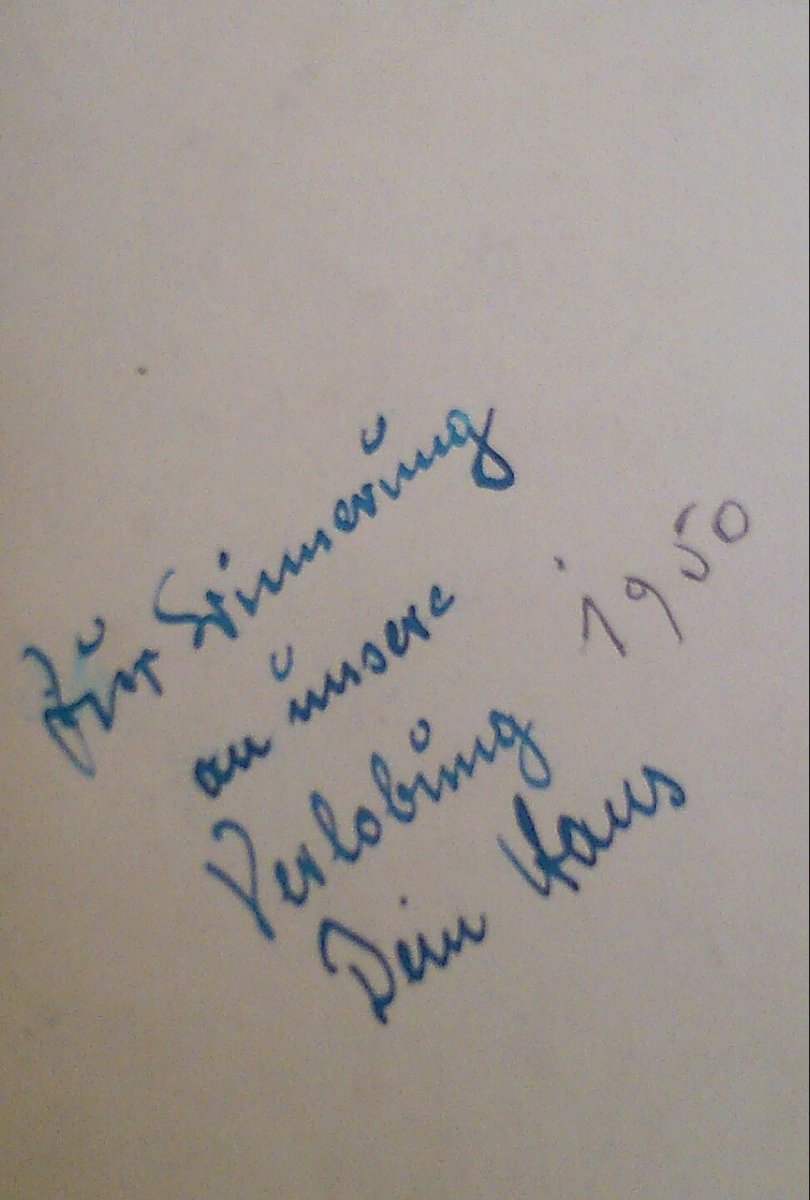 Zur Erinnerung
an unsere
Verlobung 1950
Dein Hans